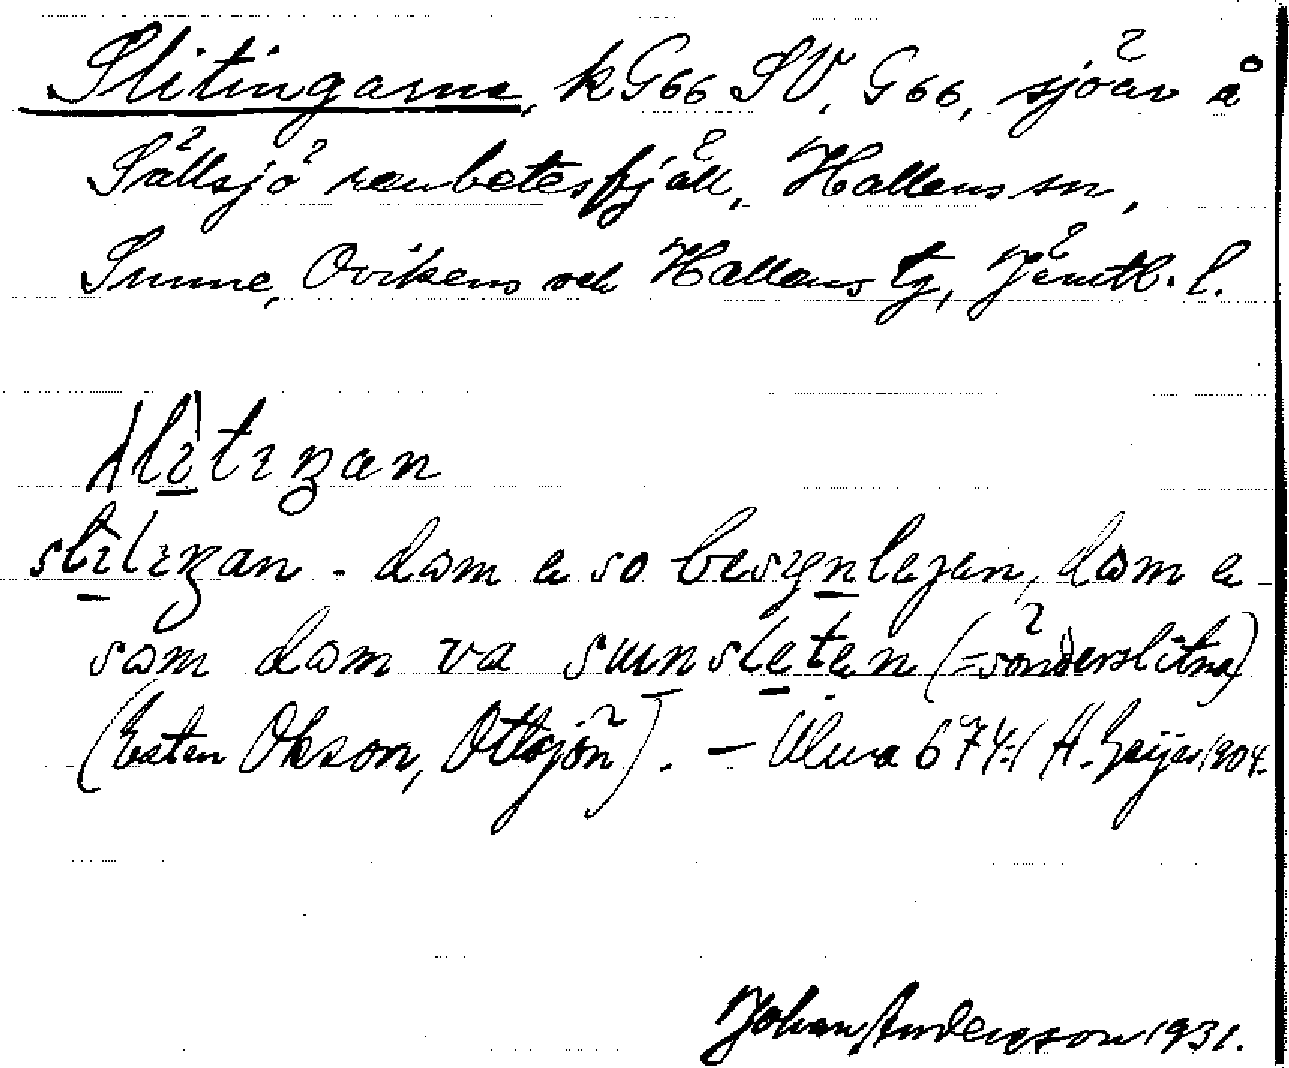 Slitingarne, kG66 SV, G66, sjöar å
Sällsjö renbetesfjäll, Hallens sn,
Sunne, Ovikens och Hallens tg, Jämtl. l.
slìtıŋan
slìtıŋan - dɷm a so besyn̲lejan, dɷm a
sɷm dɷm va sunslet̲an (=sönderslitna)
(Esten Olsson, Ottsjön). — Ulma 674:1 H. Geijer 1904.
Johan Andersson 1931.